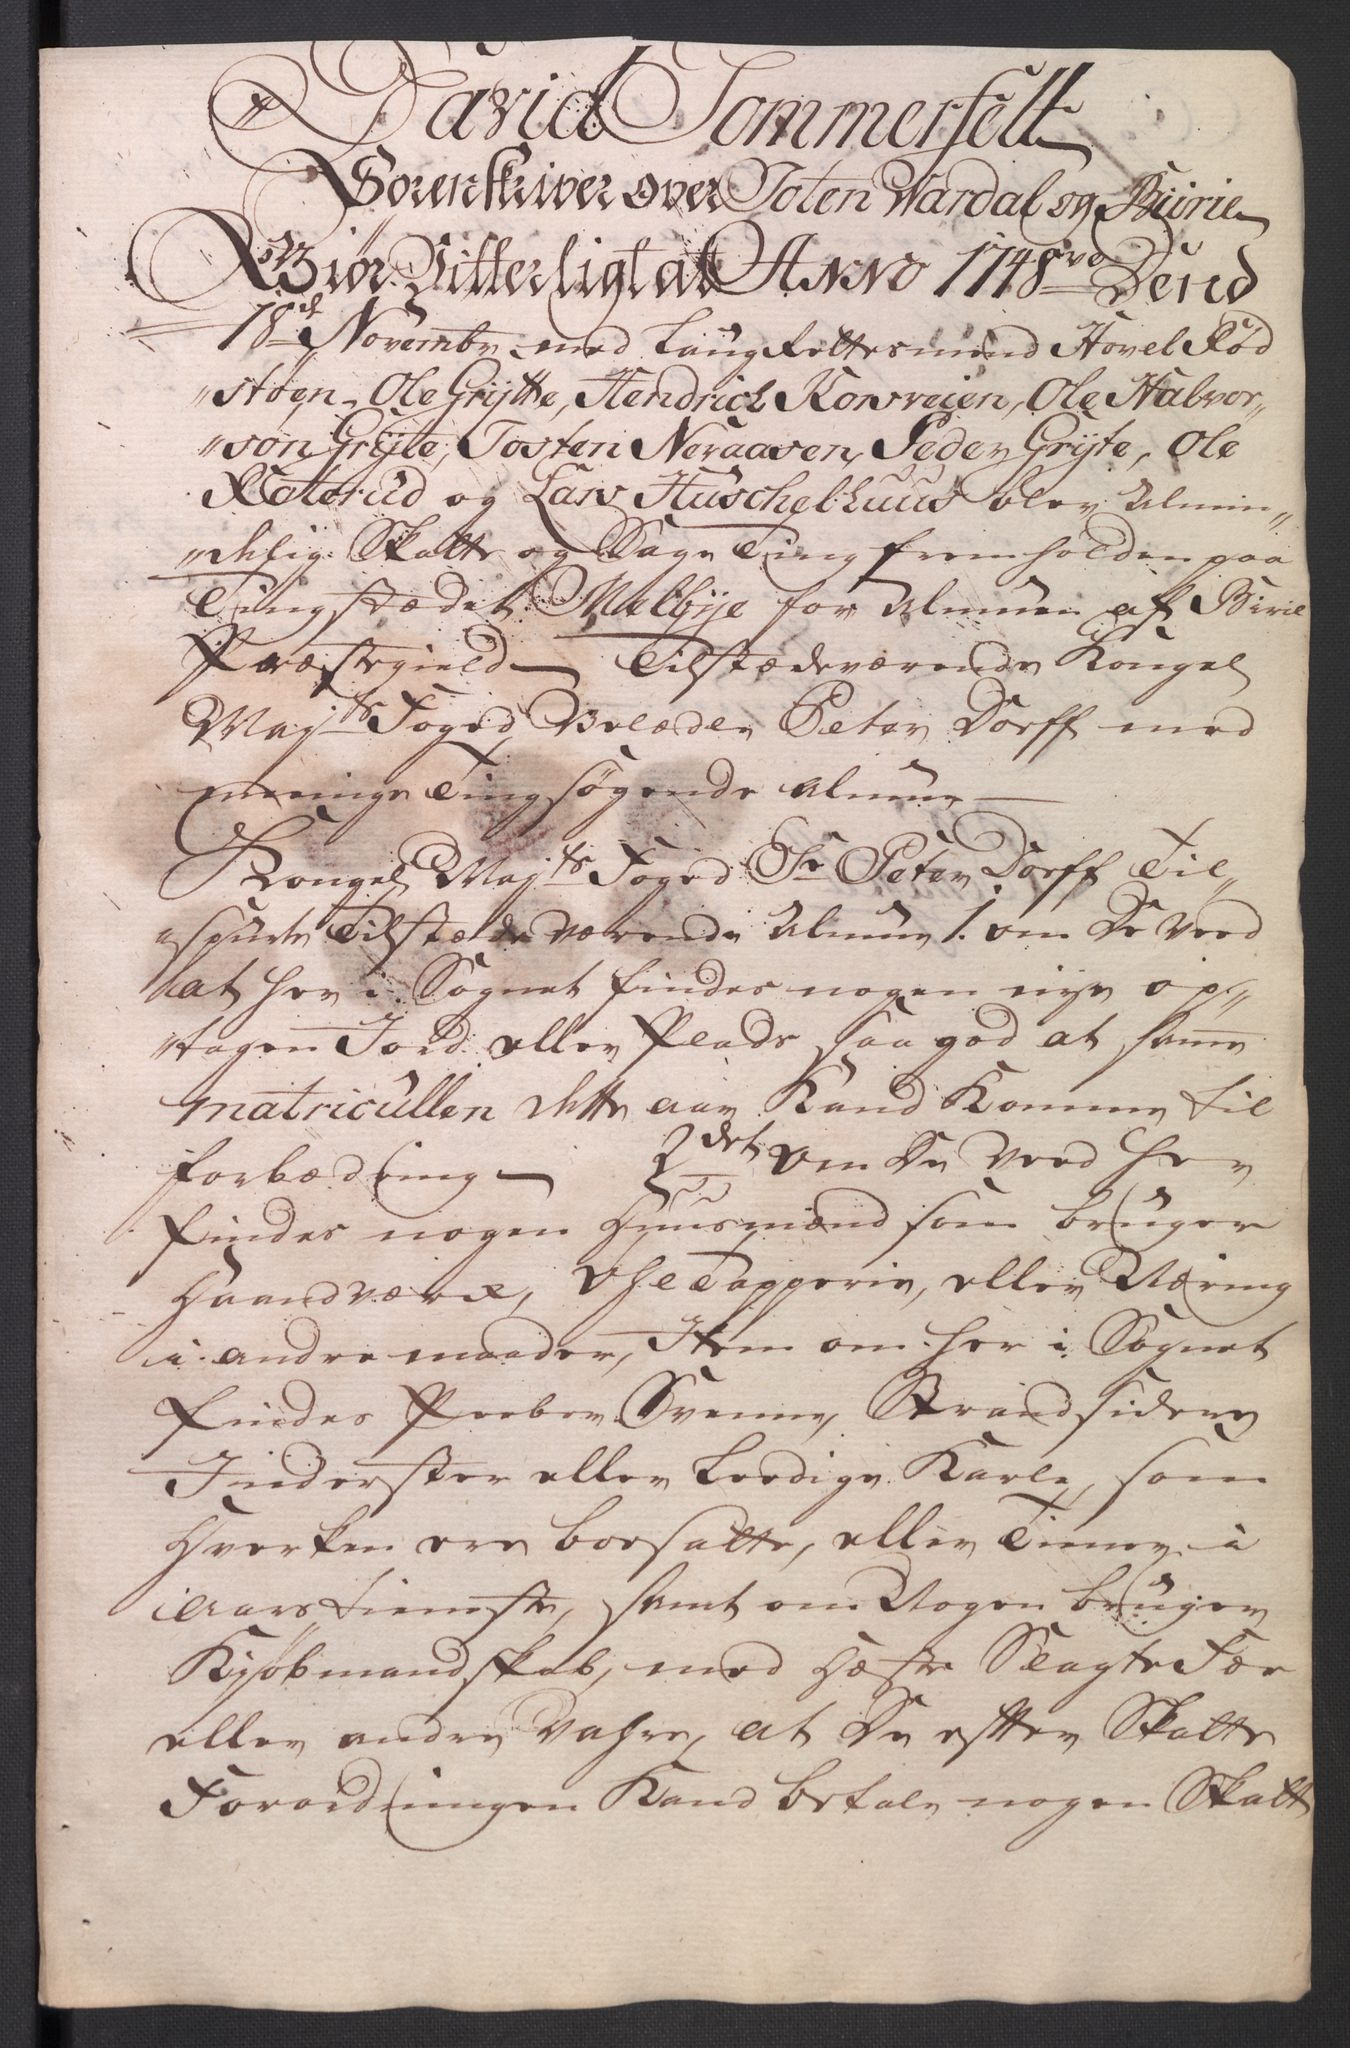 David Sommerfelt
Sorenskriver over Toten Wardal og Biirie
Giør Vitterligt at Anno 1748ve Dend
18de Novembr med Laugrettesmænd Hovel Rød
støen, Ole Grytte, Hendrich Korsveien, Ole Halvor-
søn Gryte, Tosten Neraasen, Peder Gryte, Ole
Raterud og Lars Huschelhuus blev Almin-
delig Skatte og Sage Ting fremholden paa
Tingstædet Melbye for Almuen af Birie
Præstegield — Tilstædeværende Kongel
Majts Foged Velædle Peter Dorff med
meenige Tingsøgende Almue —
Kongel Majts Foged Sr Peter Dorff Til,,
spurte Tilstædeværende Almue 1. om De veed
at her i Sognet findes nogen nye op-
tagen Jord eller Plads saa god at samme
matricullen dette aar Kand Komme til
forbædring — 2det Om De Veed her
findes nogen Huusmænd som bruger
Haandværk, Ohl Tapperie, eller Næring
i andre maader, Item om her i Sognet
findes Peebersvenne, Strandsidere
Inderster eller Leedige Karle, som
Hverken ere boesatte, eller Tiener i
Aars tieneste, samt om Nogen bruger
Kjøbmandskab, med Heste Slagte Fæe
eller andre Vahre, at De efter Skatte
Forordningen Kand betale nogen Skatt